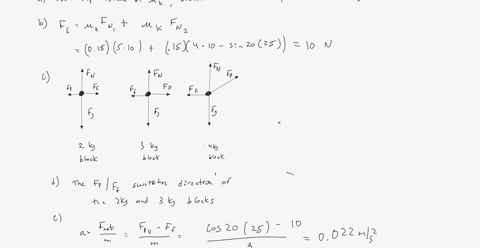 b) F_f = μ_k F_N₁ + μ_k F_N₂
= (0.15)(5·10) + (.15)(4·10 − sin20(25)) = 10 N
c)
F_N F_N F_N F_p
F_f F_f F_p F_f
F_g F_g F_g
2 kg 3 kg 4kg
block block block
d) The F_p/F_f switches direction of
the 2kg and 3 kg blocks
e) a = F_net/m = F_p|| − F_f/m = cos20(25) − 10/9 = 0.022 m/s²